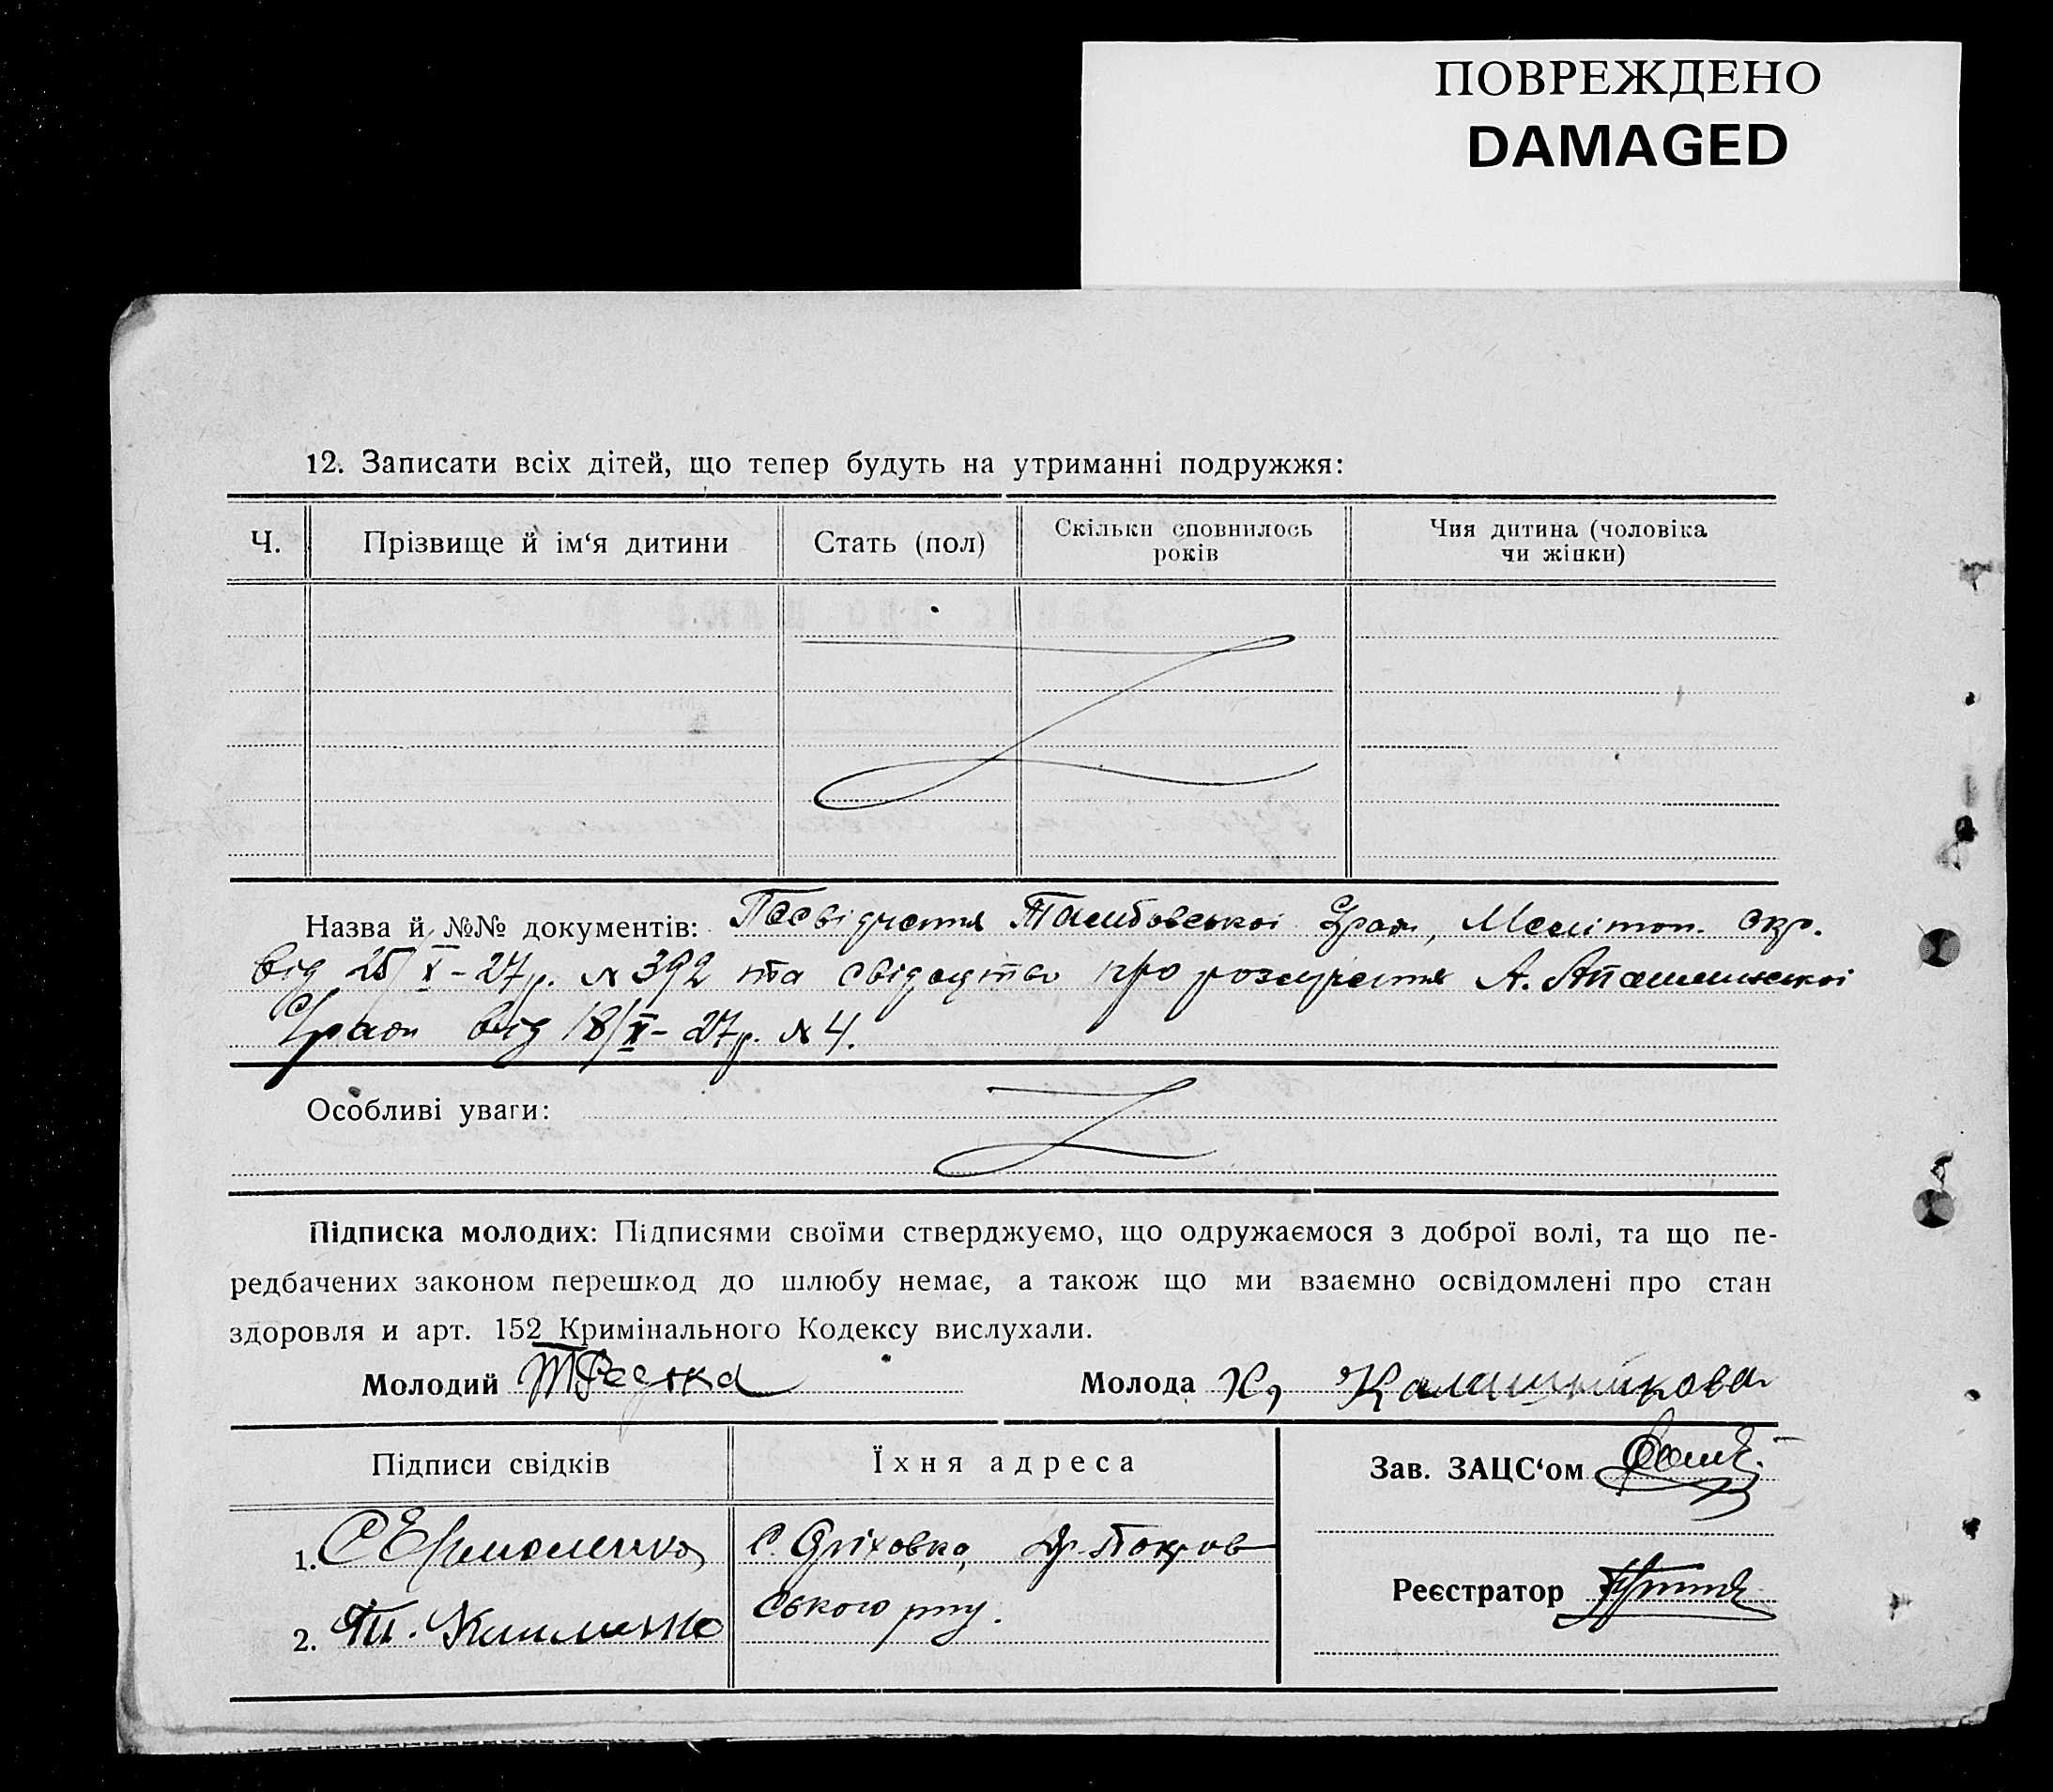 ПОВРЕЖДЕНО
DAMAGED
12. Записати всіх дітей, що тепер будуть на утриманні подружжя:
Ч.
Прізвище й ім‘я дитини
Стать (пол)
Скільки сповнилось
років
Чия дитина (чоловіка
чи жінки)
Назва й №№ документів: Посвідчення Тамбовської Мелітоп. окр.
від 25/X-27р. № 392 та свідоцтво про розлучення А.
від 18/X-27р. № 4.
Особливі уваги:
Підписка молодих: Підписями своїми стверджуємо, що одружаємося з доброї волі, та що пе-
редбачених законом перешкод до шлюбу немає, а також що ми взаємно освідомлені про стан
здоровля и арт. 152 Кримінального Кодексу вислухали.
Молодий
Молода Калашникова
Підписи свідків
Їхня адреса
Зав. ЗАЦС‘ом
1. С Ермоленко
С. Оріховка, Др-Покров
Реєстратор
2. Клименко
ського рну.